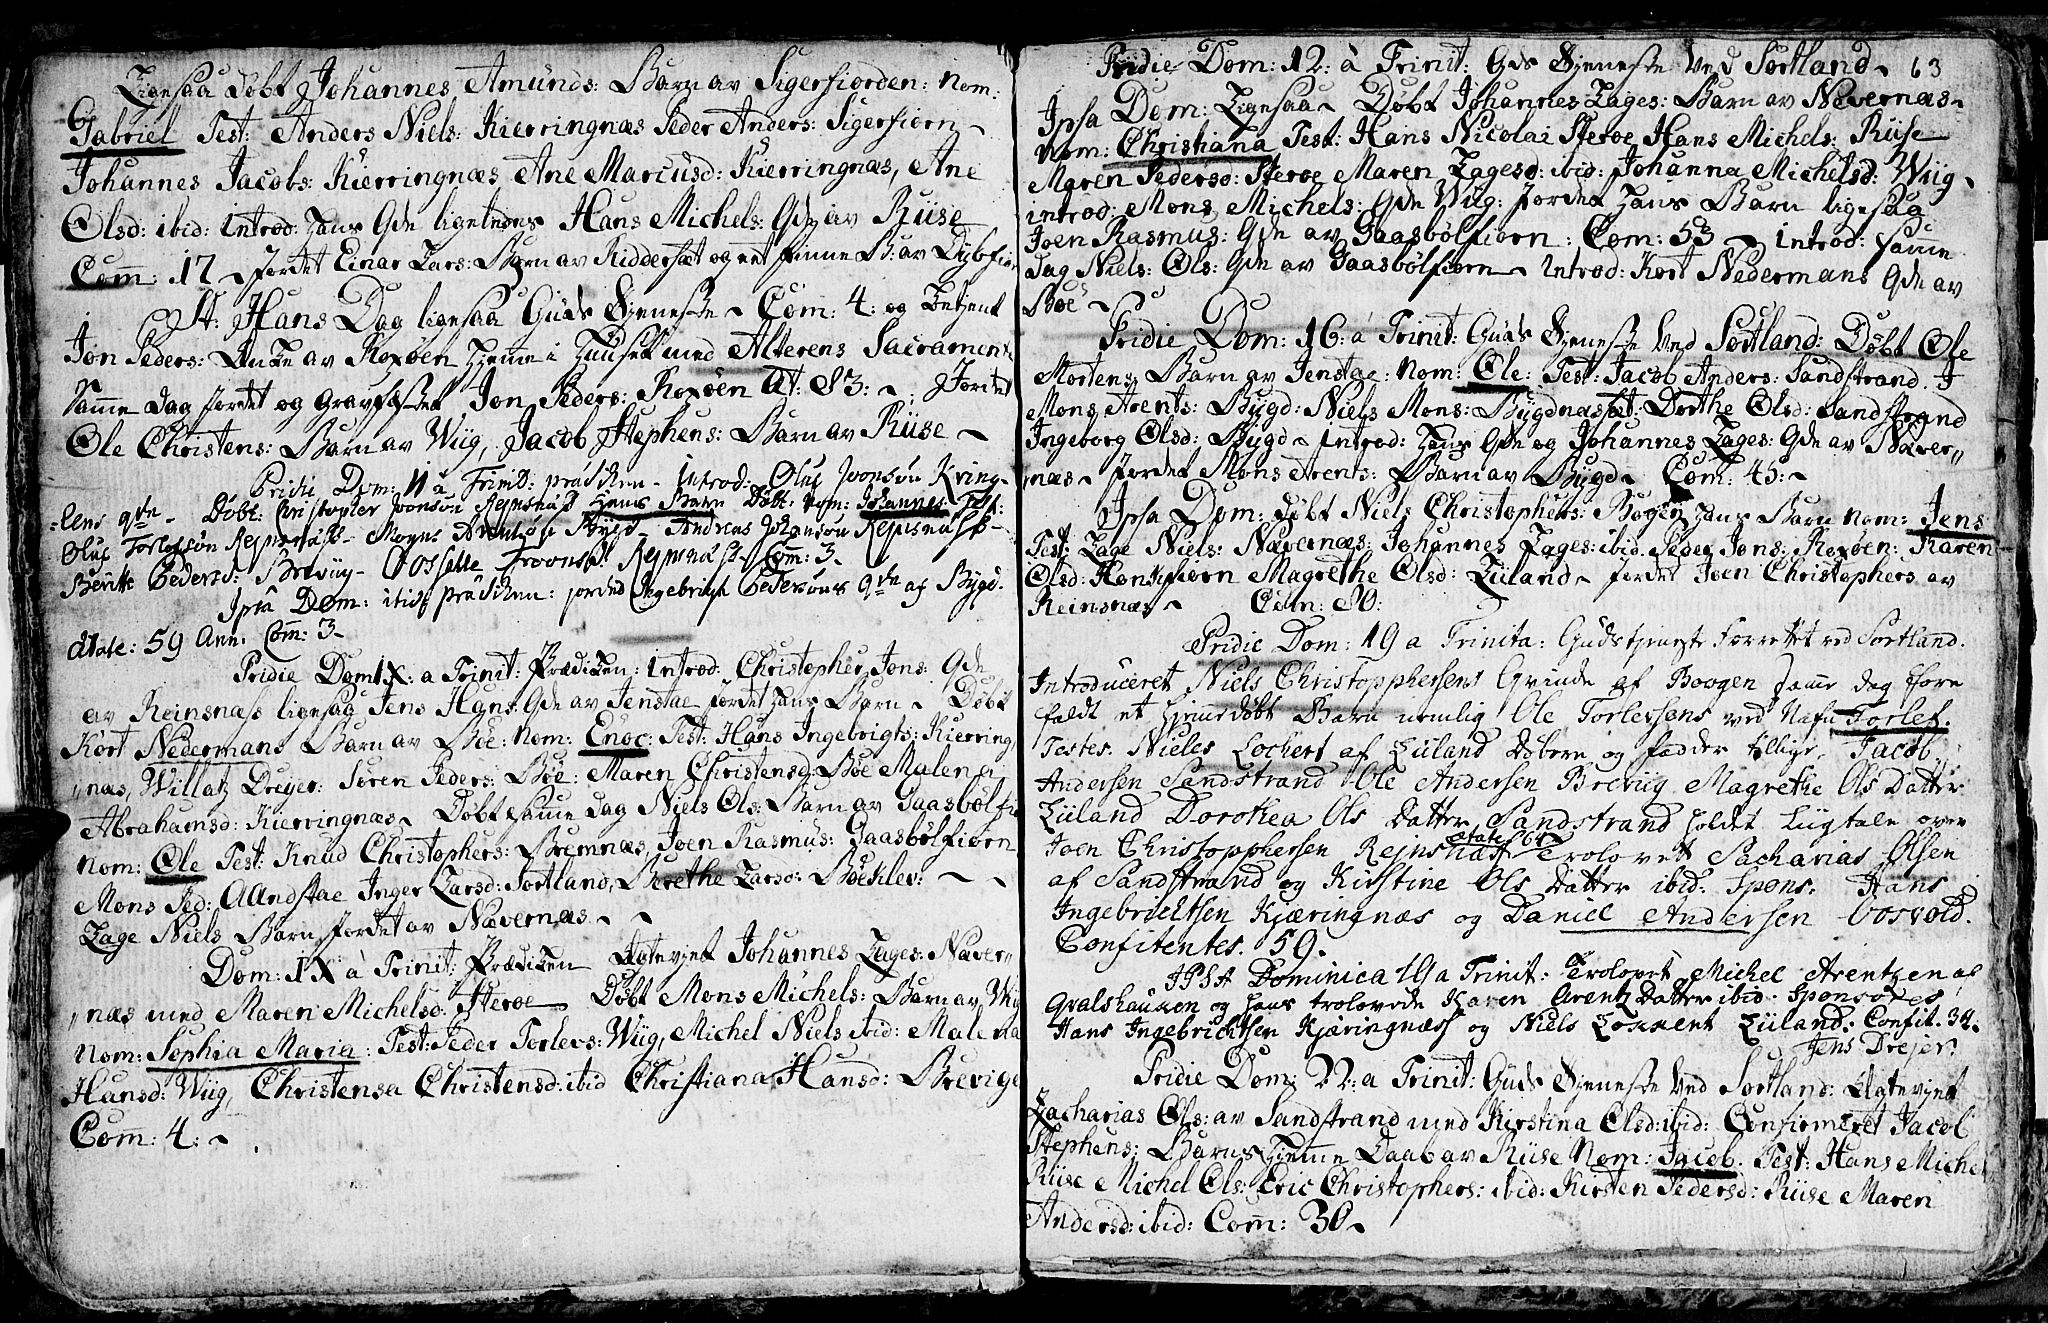 Ligesaa Døbt Johannes Amunds: Barn av Sigerfiorden: nom:
Gabriel Test: Anders Niels: Kierringnæs Peder Anders: Sigerfiorn
Johannes Jacobs: Kierringnæs, Ane Marcusd: Kierringnæs, Ane
Olsd: ibid: Introd: Hans Qde ligeledes Hans Michels: Qde av Riise
Com: 17 Jordet Einar Lars: Barn av Riddersæt og eet
St: Hans Dag ligesaa Guds Tjeneste Com: 4: og Betjent
Jon Peders: Enke av Roxøen hjemme i Huuset med Alterens Sacrament
samme dag jordet og gravfæstet Jon Peders: Roxøen Æt: 83: Jordet
Ole Christens: Barn av Wiig, Jacob Stephens: Barn av Riise
Pridie Dom: 11 à Trinit: prædiken Introd: Oluf Joonsøn Kving-
-lens qde Døbt: Christopher Joonsøn Rejnsnæss Hans Barn Døbt. nom: Johannes Test:
Oluf Torlefsøn Rejnsnæss Mogns Arentsøn Bygd Andreas Johansøn Rejnsnæss
Beritte Pedersd: Brevüg Gosselle Rejnsnæss Com: 3
Ipsa Dom: ibid prædiken: jorded Ingebrigt Pedersøns qde af Bygd.
Ætate: 59 Ann: Com: 3
Pridie Dom IX: a Trinit: Prædiken: Introd: Christopher Jens: Qde
av Reinsnæss ligesaa Jens Hans: Qde av Jenstae jordet Hans Barn Døbt
Kort Nedermans Barn av Bøe: Nom: Enoc: Test: Hans Ingebrigts: Kierring„
„næs, Willatz Dreyer: Søren Peders: Bøe: Maren Christensd: Bøe Malena
Abrahamsd: Kierringnæs Døbt samme dag Niels Ols: Barn av Gaasbølfi
nom: Ole Test: Knud Christophers: Bremnæs, Joen Rasmus: Gaasbølfiorn
Mons Ped: Aandstae Inger Larsd: Sortland, Berethe Larsd: Bøehlev:
Lage Niels Barn jordet av Nævernæs
Dom: IX à Trinit: Prædiken Egteviet Johannes Lages: Næver„
„næs med Maren Michelsd: Steroe Døbt Mons Michels: Barn av Wiig
Nom: Sophia Maria: Test: Peder Torlevs: Wiig, Michel Niels ibid: Malena
Hansd: Wiig, Christensa Christensd: ibid Christiana Hansd: Brevige
Com: 4:
Pridie Dom: 12: à Trinit: Gds Tjeneste Ved Sortland 63
Ipsa Dom: Ligesaa Døbt Johannes Lages: Barn av Nævernæs
Nom: Christiana Test: Hans Nicolai Steroe Hans Michels: Riise
Maren Pedersd: Steroe Maren Lagesd: ibid: Johanna Michelsd: Wiig
introd: Mons Michels: Qde Wiig: Jordet Hans Barn ligesaa
Joen Rasmus: Qde av Gaasbølfiorn: Com: 53 Introd: samme
Dag Niels: Ols: Qde av Gaasbølfiorn Introd: Kort Nedermans Qde av
Bøe
Pridie Dom: 16: à Trinit: Guds Tjeneste Ved Sortland: Døbt Ole
Mortens: Barn av Jenstae: Nom: Ole: Test: Jacob Anders: Sandstrand.
Mons Arents: Bygd: Niels Mons: Bygdnæsset: Dorthe Olsd: Sandstrand
Ingeborg Olsd: Bygd Introd: Hans Qde og Johannes Lages: Qde av Næver„
„næs Jordet Mons Arents: Barn av Bygd Com: 45:
Ipsa Dom: døbt Niels Christophers: Bogen Hans Barn nom: Jens
Test: Lage Niels: Nævernæs: Johannes Lages: ibid Peder Jons: Roxøen: Karen
Olsd: Honkfiorn Magrethe Olsd: Liiland Jordet Joen Christophers av
Reinsnæs Com: 80:
Pridie Dom: 19 a Trinita: Gudstjeneste Forrettet ved Sortland.
Introduceret Niels Christopphersens Qvinde af Boogen samme dag Fore
faldt et Hjemmedøbt Barn nemlig Ole Torlefsens ved Nafn Torlef.
Testes. Nieles Lochert af Liiland døbere og fadder tillige Jacob
Andersen Sandstrand Ole Andersen Breviig Magrethe Ols Datter
Liiland Dorothea Ols Datter Sandstrand holdet Liigtale over
Joen Christopphersen Rejnsnæs ætate 64 Trolovet Sacharias Olsen
af Sandstrand og Kirstine Ols Datter ibid: Spons. Hans
Ingebrichtsen Kjæringnæs og Daniel Andersen Gosvold.
Confitentes. 59.
IPSA Dominica 19 a Trinit: Trolovet Michel Arentzen af
Qvalshauken og hans trolovede Karen Arentz Datter ibid: Sponsores
Hans Ingebrichtsen Kjæringnæss og Niels Lokkert Liiland: Confit. 34.
Jens Drejer.
Pridie Dom: 22: a Trinit: Guds Tjeneste Ved Sortland: Egteviet
Zacharias Ols: av Sandstrand med Kirstina Olsd: ibid: Confirmeret Jacob
Stephens: Barns Hjemme Daab av Riise Nom: Jacob. Test: Hans Michel
Riise Michel Ols: Eric Christophers: ibid: Kirsten Pedersd: Riise Maren
Andersd: ibid: Com: 30